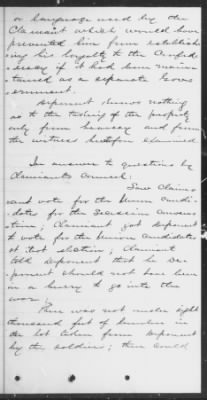 or language used by the
Claimant which would have
prevented him from establish
ing his loyalty to the Confed
eracy if it had been main
tained as a separate Gover
ernment.
Deponent knows nothing
as to the taking of the property
only from hearsay and from
the witness heretofore examined
In answer to questions by
Claimants Counsel:
Saw Claim
ant vote for the Union candi-
dates for the Secession Conven
tion; Claimant got deponent
to vote for the Union Candidates
at that election; Claimant
told deponent that he De-
ponent should not have been
in a hurry to go into the
war.
There was not under eight
thousand feet of lumber in
the lot taken from deponent
by the soldiers; there could